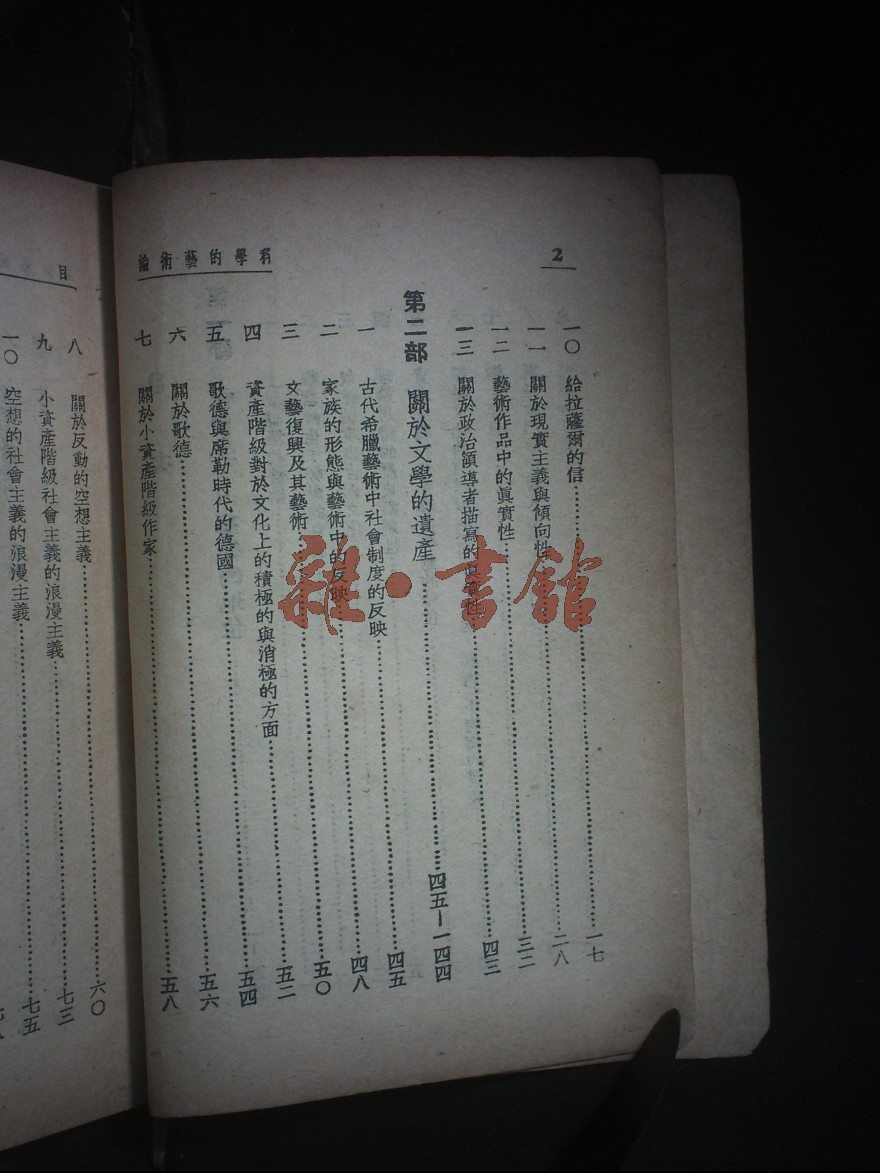 2
科學的藝術論
一〇 給拉薩爾的信……一七
一一 關於現實主義與傾向性……二八
一二 藝術作品中的眞實性……三二
一三 關於政治領導者描寫的眞實性……四三
第二部 關於文學的遺產……四五—一四四
一 古代希臘藝術中社會制度的反映……四五
二 家族的形態與藝術中的反映……四八
三 文藝復興及其藝術……五〇
四 資產階級對於文化上的積極的與消極的方面……五二
五 歌德與席勒時代的德國……五四
六 關於歌德……五六
七 關於小資產階級作家……五八
目
八 關於反動的空想主義……六〇
九 小資產階級社會主義的浪漫主義……七三
一〇 空想的社會主義的浪漫主義……七五
雜·書館